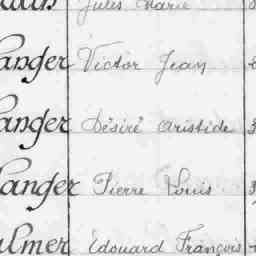 Jules Marie
anger Victor Jean
anger Désiré Aristide 3
anger Pierre Louis 3
almer Edouard François